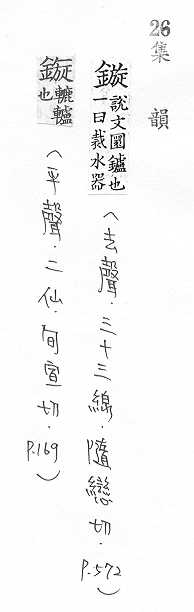 26
集韻
鏇說文圜鑪也一曰裁水器（去聲．三十三線．隨戀切．P.572）
鏇轆轤也（平聲．二仙．旬宣切．P.169）